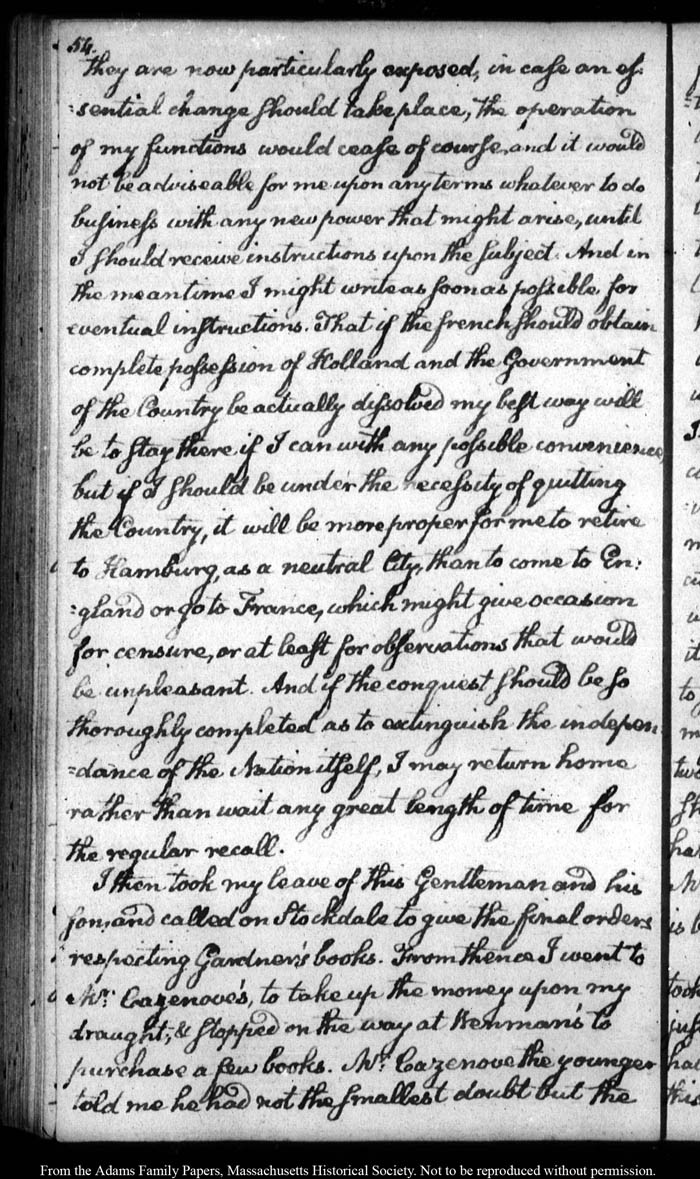 54.
they are now particularly exposed, in case an es-
=sential change should take place, the operation
of my functions would cease of course, and it would
not be adviseable for me upon any terms whatever to do
business with any new power that might arise, until
I should receive instructions upon the subject. And in
the mean time I might write as soon as possible, for
eventual instructions. That if the french should obtain
complete possession of Holland and the Government
of the Country be actually dissolved my best way will
be to stay there if I can with any possible convenience,
but if I should be under the necessity of quitting
the Country, it will be more proper for me to retire
to Hamburg, as a neutral City, than to come to En:
=gland or go to France, which might give occasion
for censure, or at least for observations that would
be unpleasant. And if the conquest should be so
thoroughly completed as to extinguish the indepen
=dance of the Nation itself, I may return home
rather than wait any great length of time for
the regular recall.
I then took my leave of this Gentleman and his
son, and called on Stockdale to give the final orders
respecting Gardner's books. From thence I went to
Mr. Cazenove's, to take up the money upon my
draught, & stopped on the way at Kenman's to
purchase a few books. Mr. Cazenove the younger
told me he had not the smallest doubt but the
From the Adams Family Papers, Massachusetts Historical Society. Not to be reproduced without permission.